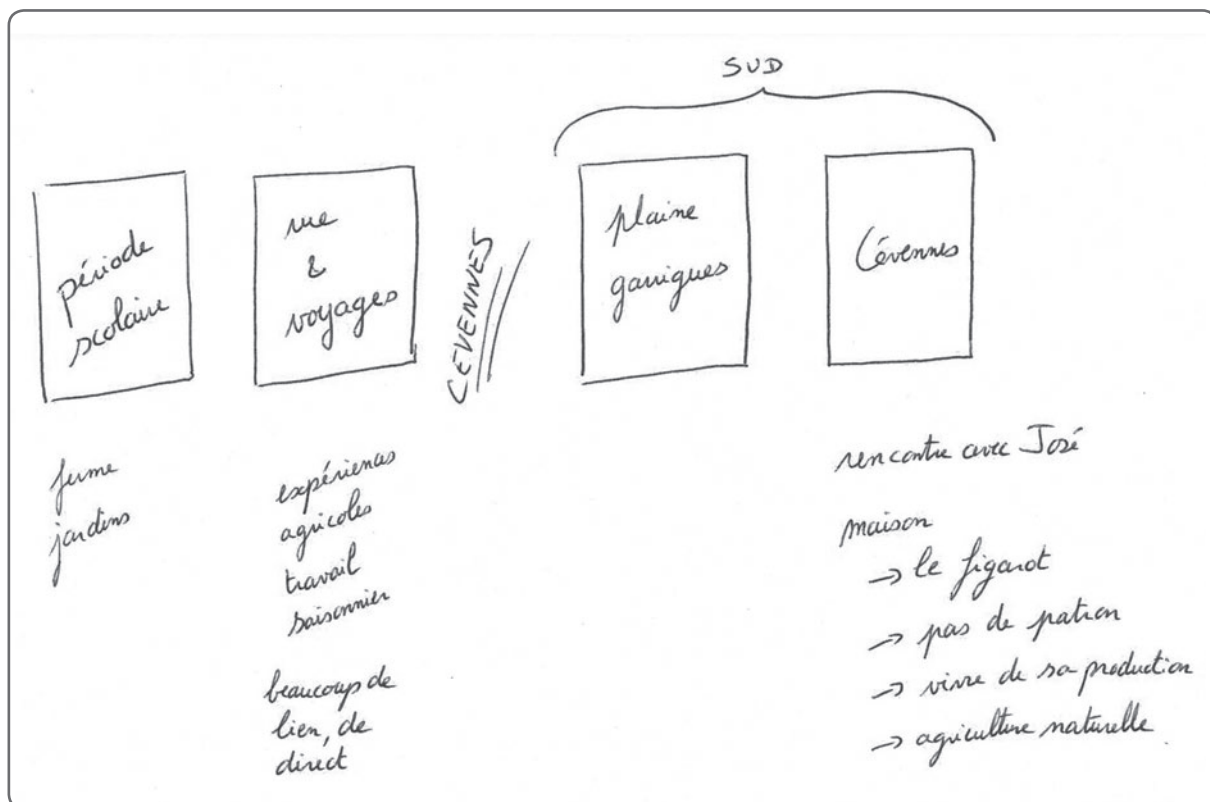 SUD
période
scolaire
rue
&
voyages
CÉVENNES
plaine
garrigues
Cévennes
ferme
jardins
expériences
agricoles
travail
saisonnier
beaucoup de
lien, de
direct
rencontre avec José
maison
→ le figarot
→ pas de patron
→ vivre de sa production
→ agriculture naturelle